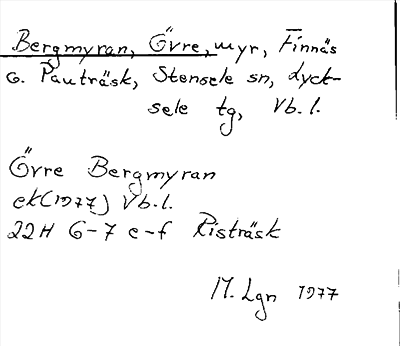 Bergmyran, Övre, myr, Finnäs
o. Pauträsk, Stensele sn, Lyck-
sele tg, Vb.l.
Övre Bergmyran
ek(1977) Vb.l.
22H 6-7 e-f Risträsk
M. Lgn 1977